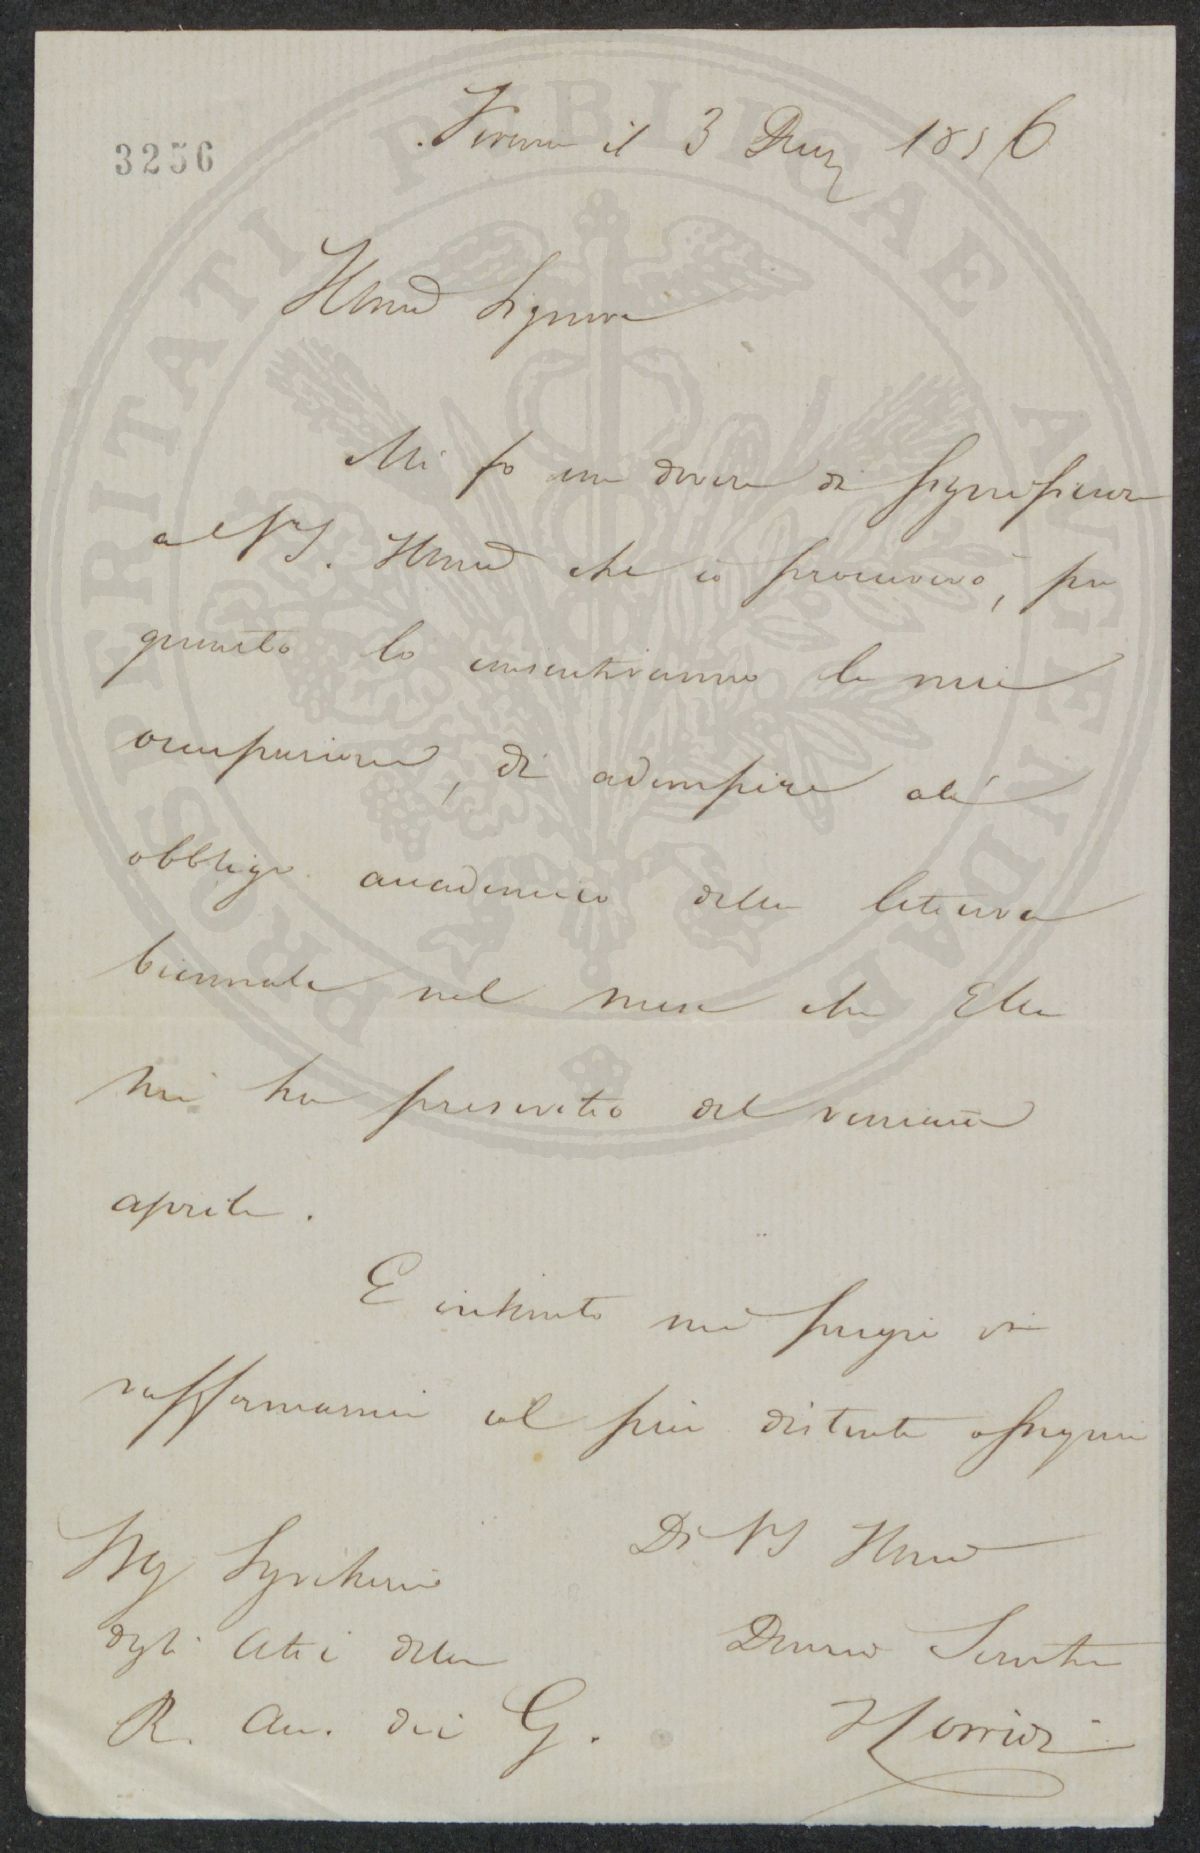 3256
Firenze il 3 Dicem 1856
Illmo Signore
Mi fo un dovere di significare
al V. S. Illma che io procurerò, per
quanto lo consentiranno le mie
occupazioni, di adempire all'
obbligo accademico della lettura
biennale nel mese che Ella
mi ha prescritto del venturo
aprile.
E intanto mi pregio di
raffermarmi col più distinto ossequio
Di V S Illma
Sig. Segretario
degli Atti della
R. Acc. dei G.
Devmo Servitore
PROSPERITATI PUBLICAE AUGENDAE